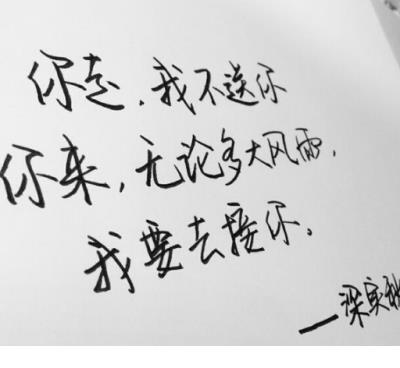 你走,我不送你
你来,无论多大风雨,
我要去接你。
—深夜